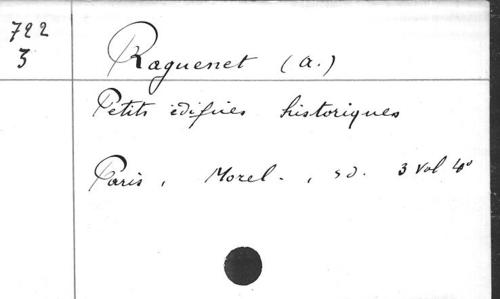 722
3
Raguenet (A.)
Petits édifices historiques
Paris, Morel. , s d. 3 vol 4°